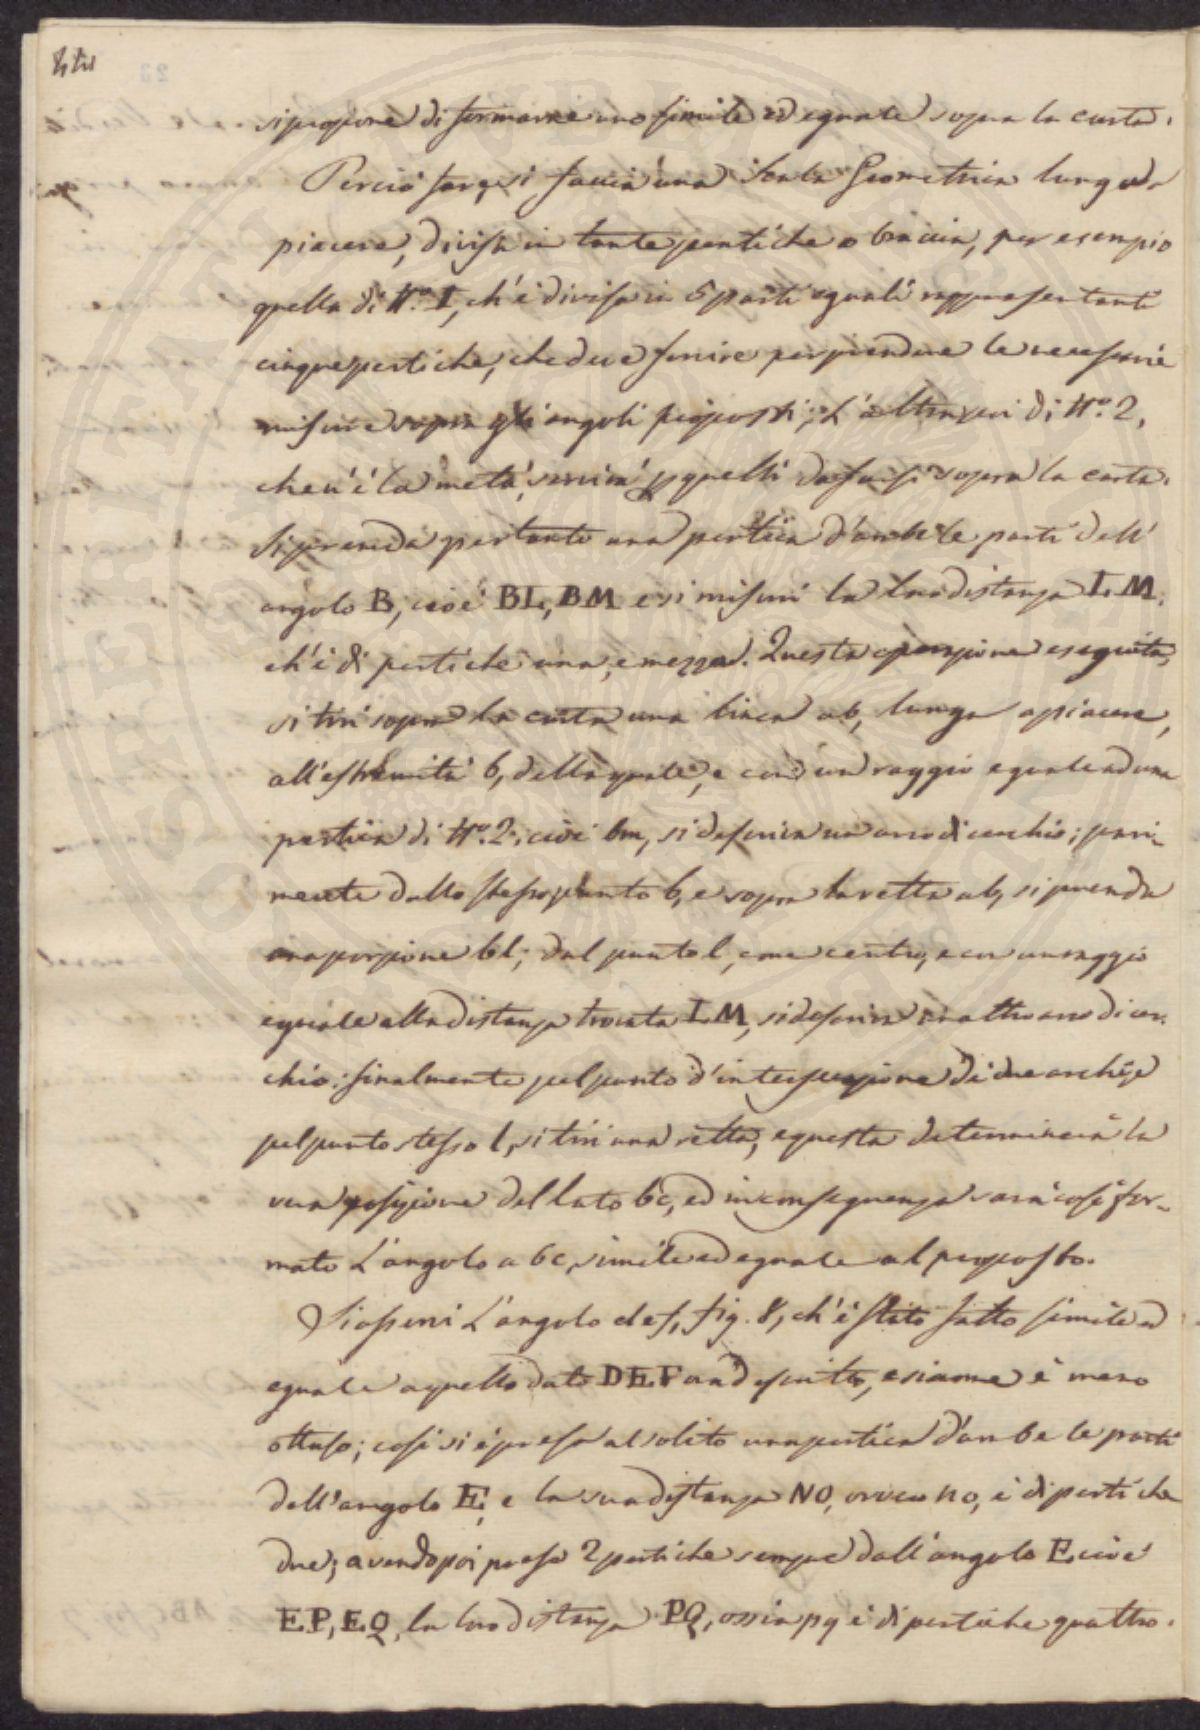 si propone di formarne uno simile ed eguale sopra la carta.
Perciò fare, si faccia una Scala Geometrica lunga a
piacere, divisa in tante pertiche o braccia, per esempio
quella di N.º I, ch'è divisa in 5 parti eguali rappresentanti
cinque pertiche, che deve servire per prendere le necessarie
misure sopra gli angoli proposti; L'altra poi di N.º 2,
che n'è la metà, servirà p quelli da farsi sopra la carta.
Si prenda pertanto una pertica d'ambe le parti dell'
angolo B, cioè BL, BM e si misuri la loro distanza LM,
ch'è di pertiche una, e mezza. Questa operazione eseguita,
si tiri sopra la carta una linea ab, lunga a piacere,
all'estremità b, della quale, e con un raggio eguale ad una
pertica di N.º 2, cioè bm, si descriva un arco di cerchio; pari-
mente dallo stesso punto b, e sopra la retta ab, si prenda
una porzione bl; dal punto l, come centro, e con un raggio
eguale alla distanza trovata LM, si descriva un altro arco di cer-
chio: finalmente pel punto d'intersecazione di due archi, e
pel punto stesso l, si tiri una retta, e questa determinerà la
vera posizione del lato bc, ed in conseguenza sarà così for-
mato L'angolo abc, simile ed eguale al proposto.
Si osservi L'angolo def, fig. 8, ch'è stato fatto simile ed
eguale a quello dato DEF, e siccome è meno
ottuso; così si è presa al solito una pertica d'ambe le parti
dell'angolo E, e la sua distanza NO, ovvero no, è di pertiche
due; avendo poi preso 2 pertiche sempre dall'angolo E cioè
EP, EQ, la loro distanza PQ, ossia pq è di pertiche quattro.